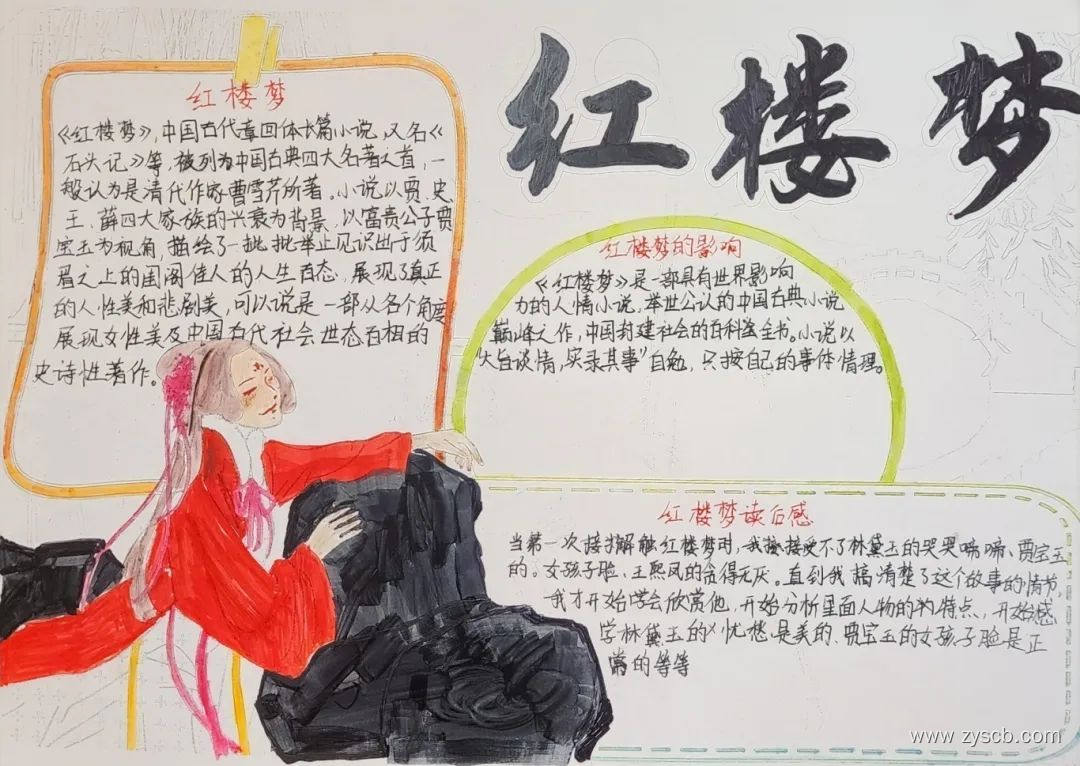 红楼梦
红楼梦
《红楼梦》,中国古代章回体长篇小说,又名《
石头记》等,被列为中国古典四大名著之首,一
般认为是清代作家曹雪芹所著。小说以贾、史、
王、薛四大家族的兴衰为背景,以富贵公子贾
宝玉为视角,描绘了一批批举止见识出于须
眉之上的闺阁佳人的人生百态,展现了真正
的人性美和悲剧美,可以说是一部从各个角度
展现女性美及中国古代社会世态百相的
史诗性著作。
红楼梦的影响
《红楼梦》是一部具有世界影响
力的人情小说,举世公认的中国古典小说
巅峰之作,中国封建社会的百科全书。小说以
"大旨谈情,实录其事"自勉,只按自己的事体情理。
红楼梦读后感
当第一次接触红楼梦时,我接受不了林黛玉的哭哭啼啼、贾宝玉
的。女孩子脸、王熙凤的贪得无厌。直到我搞清楚了这个故事的情节,
我才开始学会欣赏他,开始分析里面人物的特点,开始感
学林黛玉的忧愁是美的、贾宝玉的女孩子脸是正
常的等等
www.zyscb.com